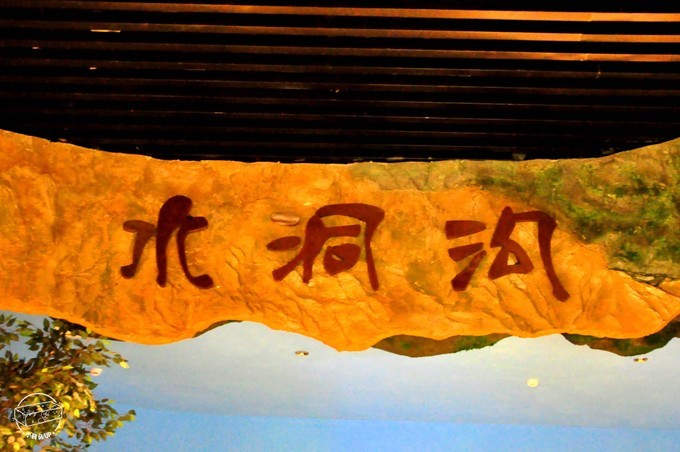 水洞沟